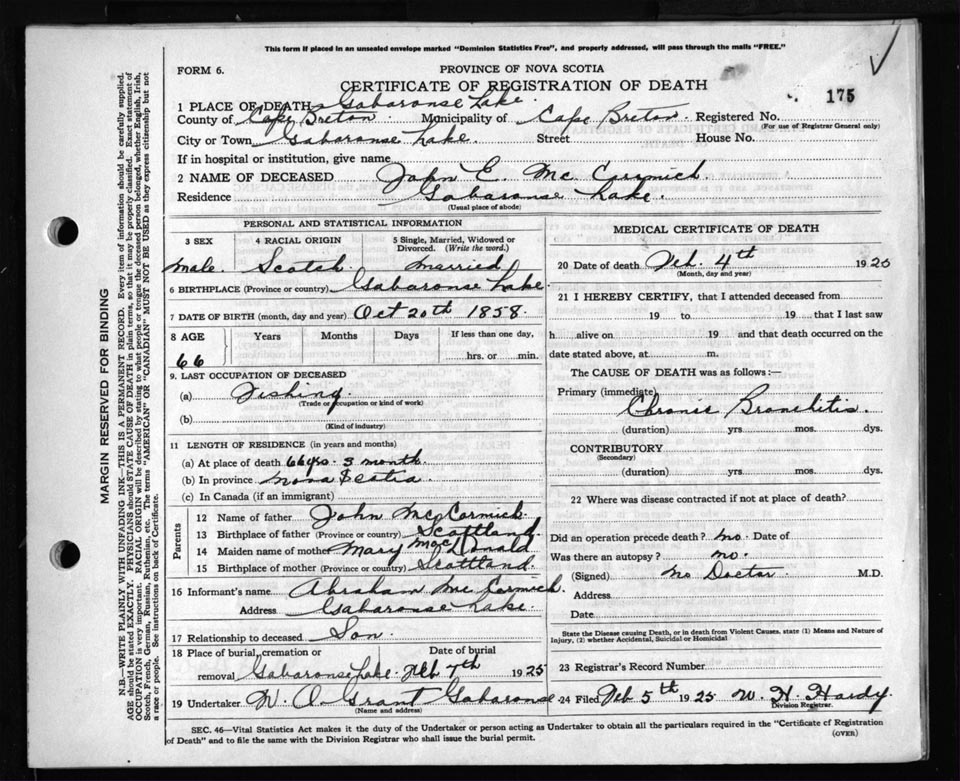 This form if placed in an unsealed envelope marked "Dominion Statistics Free", and properly addressed, will pass through the mails "FREE."
FORM 6.
PROVINCE OF NOVA SCOTIA
CERTIFICATE OF REGISTRATION OF DEATH
175
1 PLACE OF DEATH Gabarouse Lake.
County of Cape Breton Municipality of Cape Breton Registered No.
(For use of Registrar General only)
City or Town Gabarouse Lake. Street House No.
If in hospital or institution, give name
2 NAME OF DECEASED John E. Mc Cormick.
Residence Gabarouse Lake.
(Usual place of abode)
PERSONAL AND STATISTICAL INFORMATION
3 SEX 4 RACIAL ORIGIN 5 Single, Married, Widowed or Divorced. (Write the word.)
Male. Scotch. Married
6 BIRTHPLACE (Province or country) Gabarouse Lake
7 DATE OF BIRTH (month, day and year) Oct 20th 1858.
8 AGE Years Months Days If less than one day,
66 hrs. or min.
9. LAST OCCUPATION OF DECEASED
(a) Fishing
(Trade or occupation or kind of work)
(b)
(Kind of industry)
11 LENGTH OF RESIDENCE (in years and months)
(a) At place of death 66 yrs. 3 month.
(b) In province Nova Scotia
(c) In Canada (if an immigrant)
Parents
12 Name of father John McCormick.
13 Birthplace of father (Province or country) Scottland.
14 Maiden name of mother Mary MacDonald
15 Birthplace of mother (Province or country) Scottland.
16 Informant's name Abraham McCormick.
Address Gabarouse Lake.
17 Relationship to deceased Son.
18 Place of burial, cremation or Date of burial
removal Gabarouse Lake. Feb 7th 1925
19 Undertaker W. A Grant Gabarouse
(Name and address)
MEDICAL CERTIFICATE OF DEATH
20 Date of death Feb. 4th 1925
(Month, day and year)
21 I HEREBY CERTIFY, that I attended deceased from
19 to 19 that I last saw
h alive on 19 and that death occurred on the
date stated above, at m.
The CAUSE OF DEATH was as follows:—
Primary (immediate)
Chronic Bronchitis.
(duration) yrs mos. dys.
CONTRIBUTORY
(Secondary)
(duration) yrs. mos. dys.
22 Where was disease contracted if not at place of death?
Did an operation precede death? no. Date of
Was there an autopsy? no.
(Signed) No Doctor. M.D.
Address
Date
State the Disease causing Death, or in death from Violent Causes, state (1) Means and Nature of
Injury, (2) whether Accidental, Suicidal or Homicidal
23 Registrar's Record Number
24 Filed Feb 5th 1925 W. H. Hardy.
Division Registrar.
SEC. 46—Vital Statistics Act makes it the duty of the Undertaker or person acting as Undertaker to obtain all the particulars required in the "Certificate of Registration
of Death" and to file the same with the Division Registrar who shall issue the burial permit.
(OVER)
MARGIN RESERVED FOR BINDING
N.B.—WRITE PLAINLY WITH UNFADING INK—THIS IS A PERMANENT RECORD. Every item of information should be carefully supplied.
AGE should be stated EXACTLY. PHYSICIANS should STATE CAUSE OF DEATH in plain terms, so that it may be properly classified. Exact statement of
OCCUPATION is very important. RACIAL ORIGIN will be described by stating to what people or tongue the deceased person belonged, whether English, Irish,
Scotch, French, German, Russian, Ruthenian, etc. The terms "AMERICAN" OR "CANADIAN" MUST NOT BE USED as they express citizenship but not
a race or people. See instructions on back of Certificate.